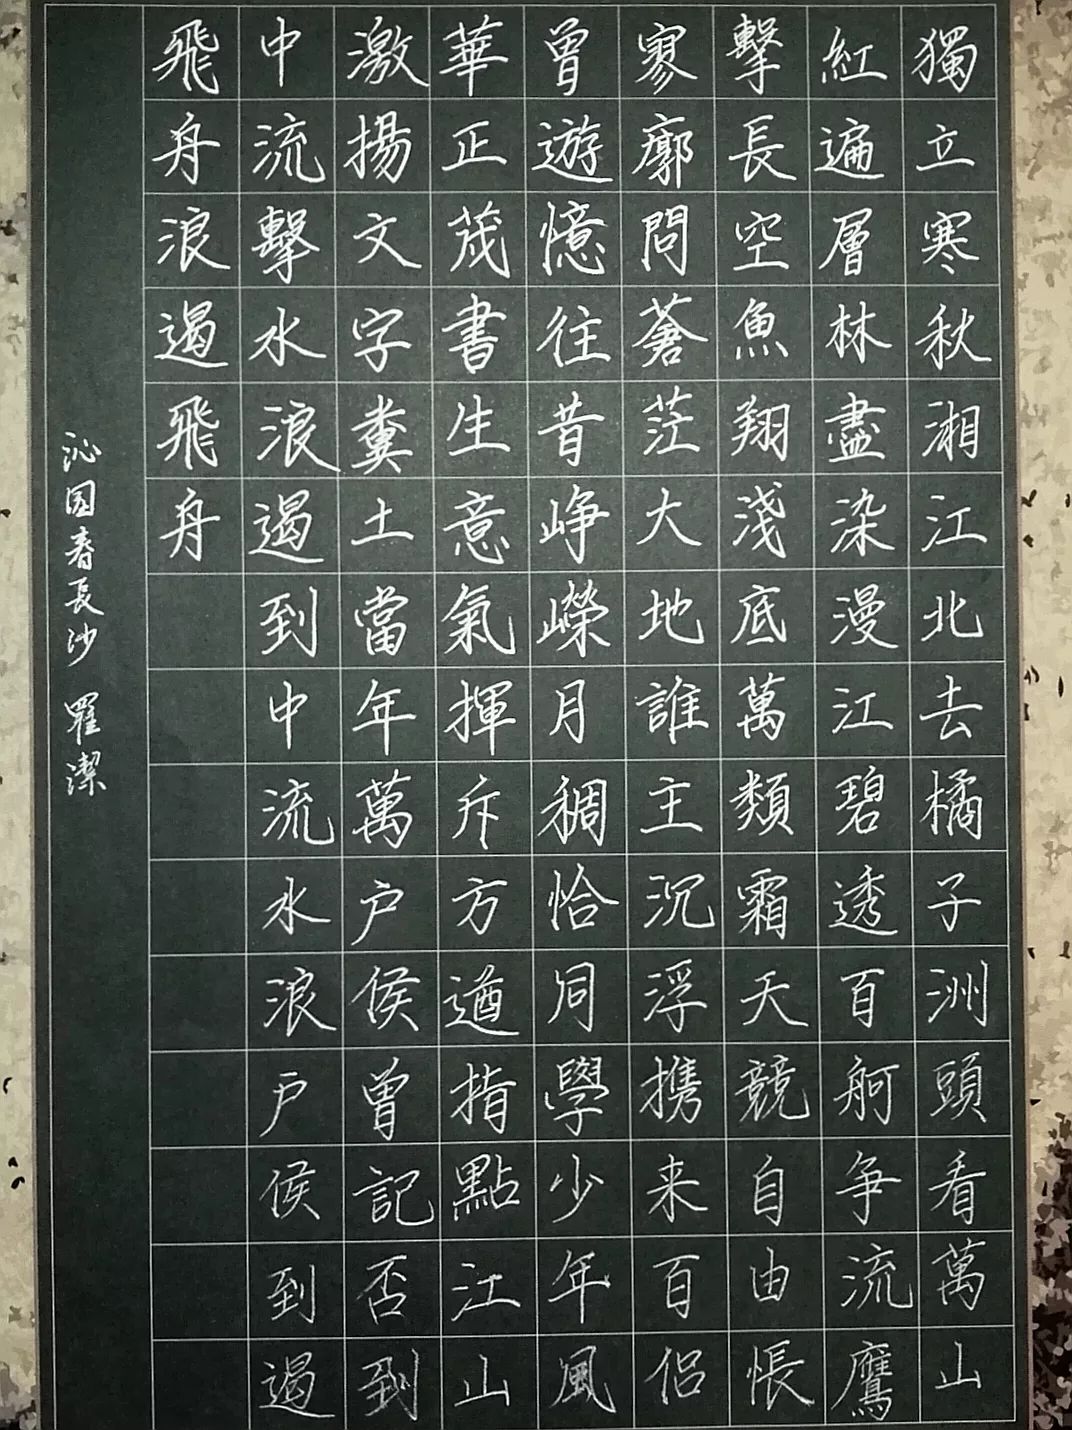 獨立寒秋湘江北去橘子洲頭看萬山
紅遍層林盡染漫江碧透百舸争流鷹
擊長空魚翔淺底萬類霜天競自由悵
寥廓問蒼茫大地誰主沉浮携来百侣
曾遊憶往昔崢嶸月稠恰同學少年風
華正茂書生意氣揮斥方遒指點江山
激揚文字糞土當年萬户侯曾記否到
中流擊水浪遏到中流水浪户侯到遏
飛舟浪遏飛舟
沁園春長沙 羅潔